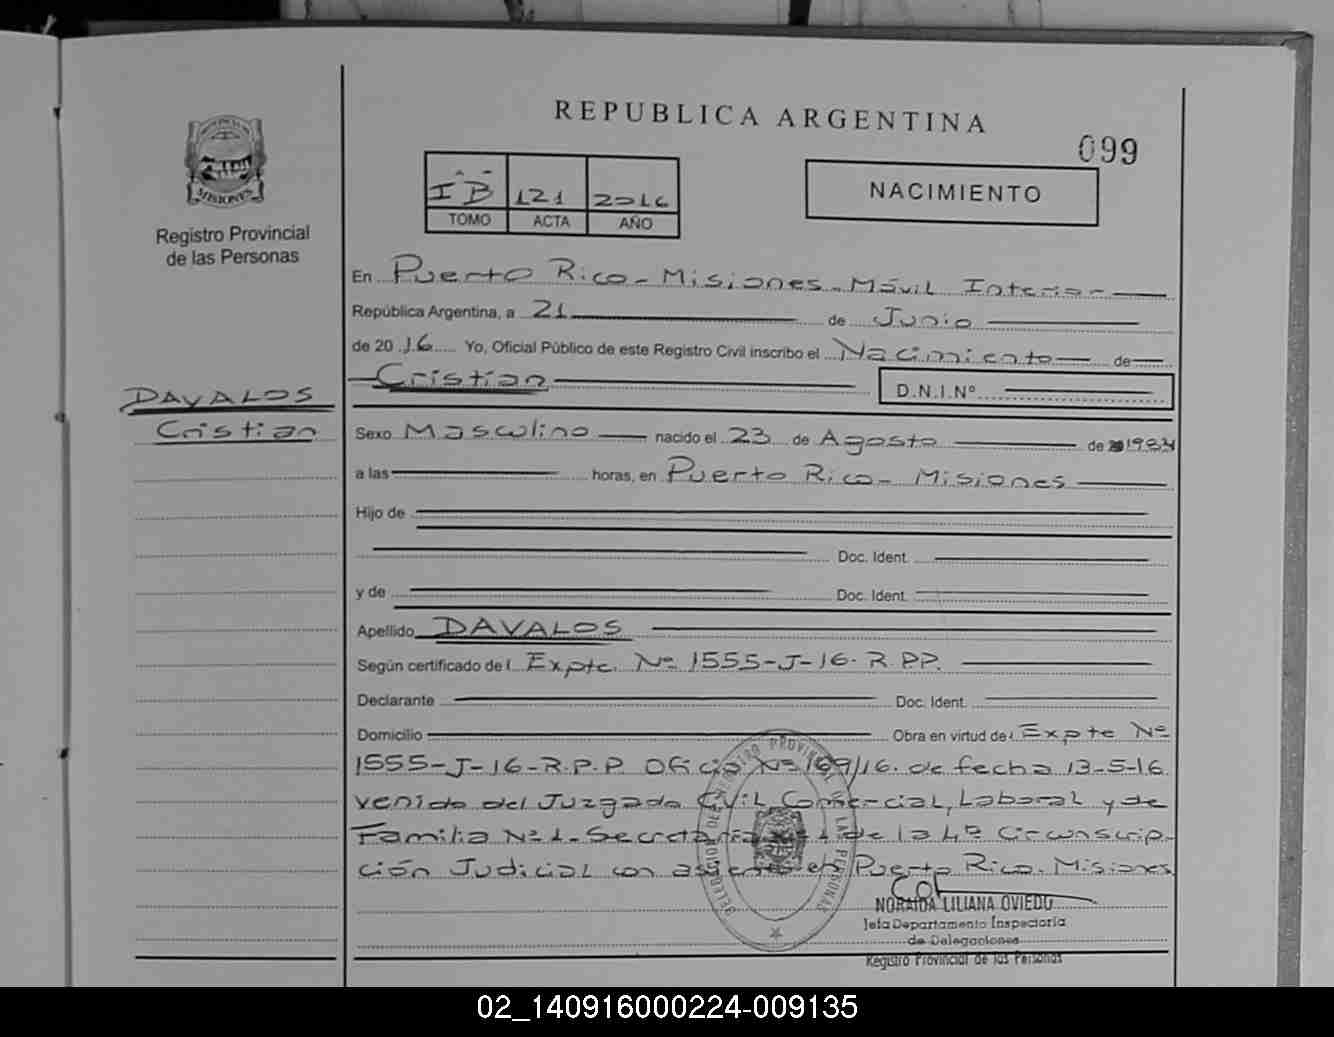 REPUBLICA ARGENTINA
099
PROVINCIA DE
MISIONES
Registro Provincial
de las Personas
I B 121 2016
TOMO ACTA AÑO
NACIMIENTO
En Puerto Rico - Misiones - Móvil Interior
República Argentina, a 21 de Junio
de 20 16 Yo, Oficial Público de este Registro Civil inscribo el Nacimiento de
Cristian D.N.I.Nº
DAVALOS
Cristian
Sexo Masculino nacido el 23 de Agosto de 1983
a las horas, en Puerto Rico - Misiones
Hijo de
Doc. Ident.
y de Doc. Ident.
Apellido DAVALOS
Según certificado de Expte. Nº 1555-J-16. R.PP.
Declarante Doc. Ident.
Domicilio Obra en virtud de Expte Nº
1555-J-16-R.P.P. Oficio Nº 169/16. de fecha 13-5-16
venido del Juzgado Civil, Comercial, Laboral y de
Familia Nº 1 - Secretaría de la 4º Circunscrip-
ción Judicial con asiento en Puerto Rico. Misiones
NORAIDA LILIANA OVIEDO
Jefa Departamento Inspectoria
de Delegaciones
Registro Provincial de las Personas
02_140916000224-009135